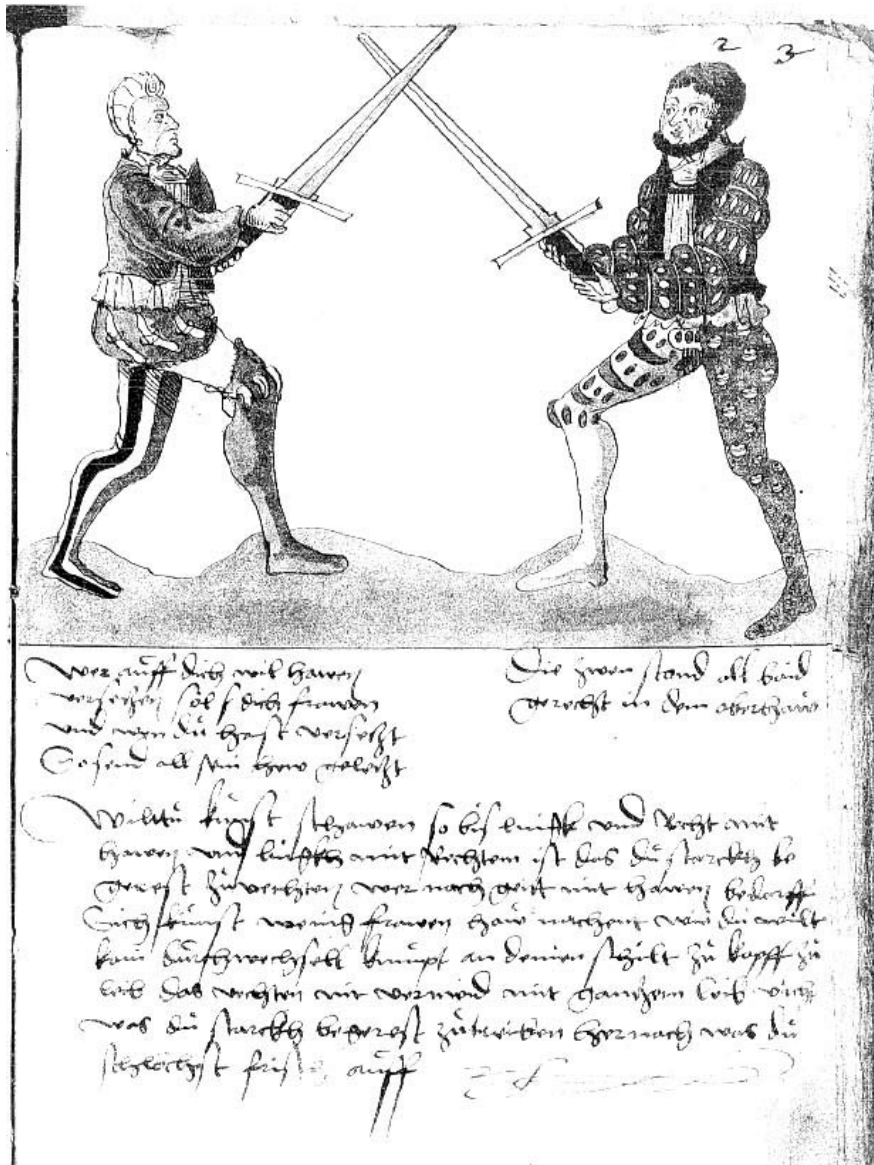 2 3
wer auff dich wil hawen
versetzen sol s dich frawen
und wen dü hast versetzt
So send all sein hew geletzt
Die zwen stand all baid
gerecht in dem oberhaw
Wiltü künst schawen so bis linckh und Recht mit
hawen und linckh mit Rechtem ist das dü starckh be
gerest zü vechten wer nach gett mit hawen bedarff
Sich künst wenig frawen haw nachent was dü wilt
kain dürchwechsell kümpt an deinen schilt zü kopff zü
leib das vechten nit vermeid mit gantzem leib vicht
was dü starckh begerest zü treiben hernach was dü
schlechst frist auff